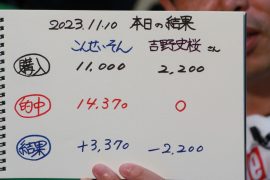 2023.11.10 本日の結果
こんせいそん 吉野史桜さん
購入 11.000 2,200
的中 14.370 0
結果 +3,370 -2,200